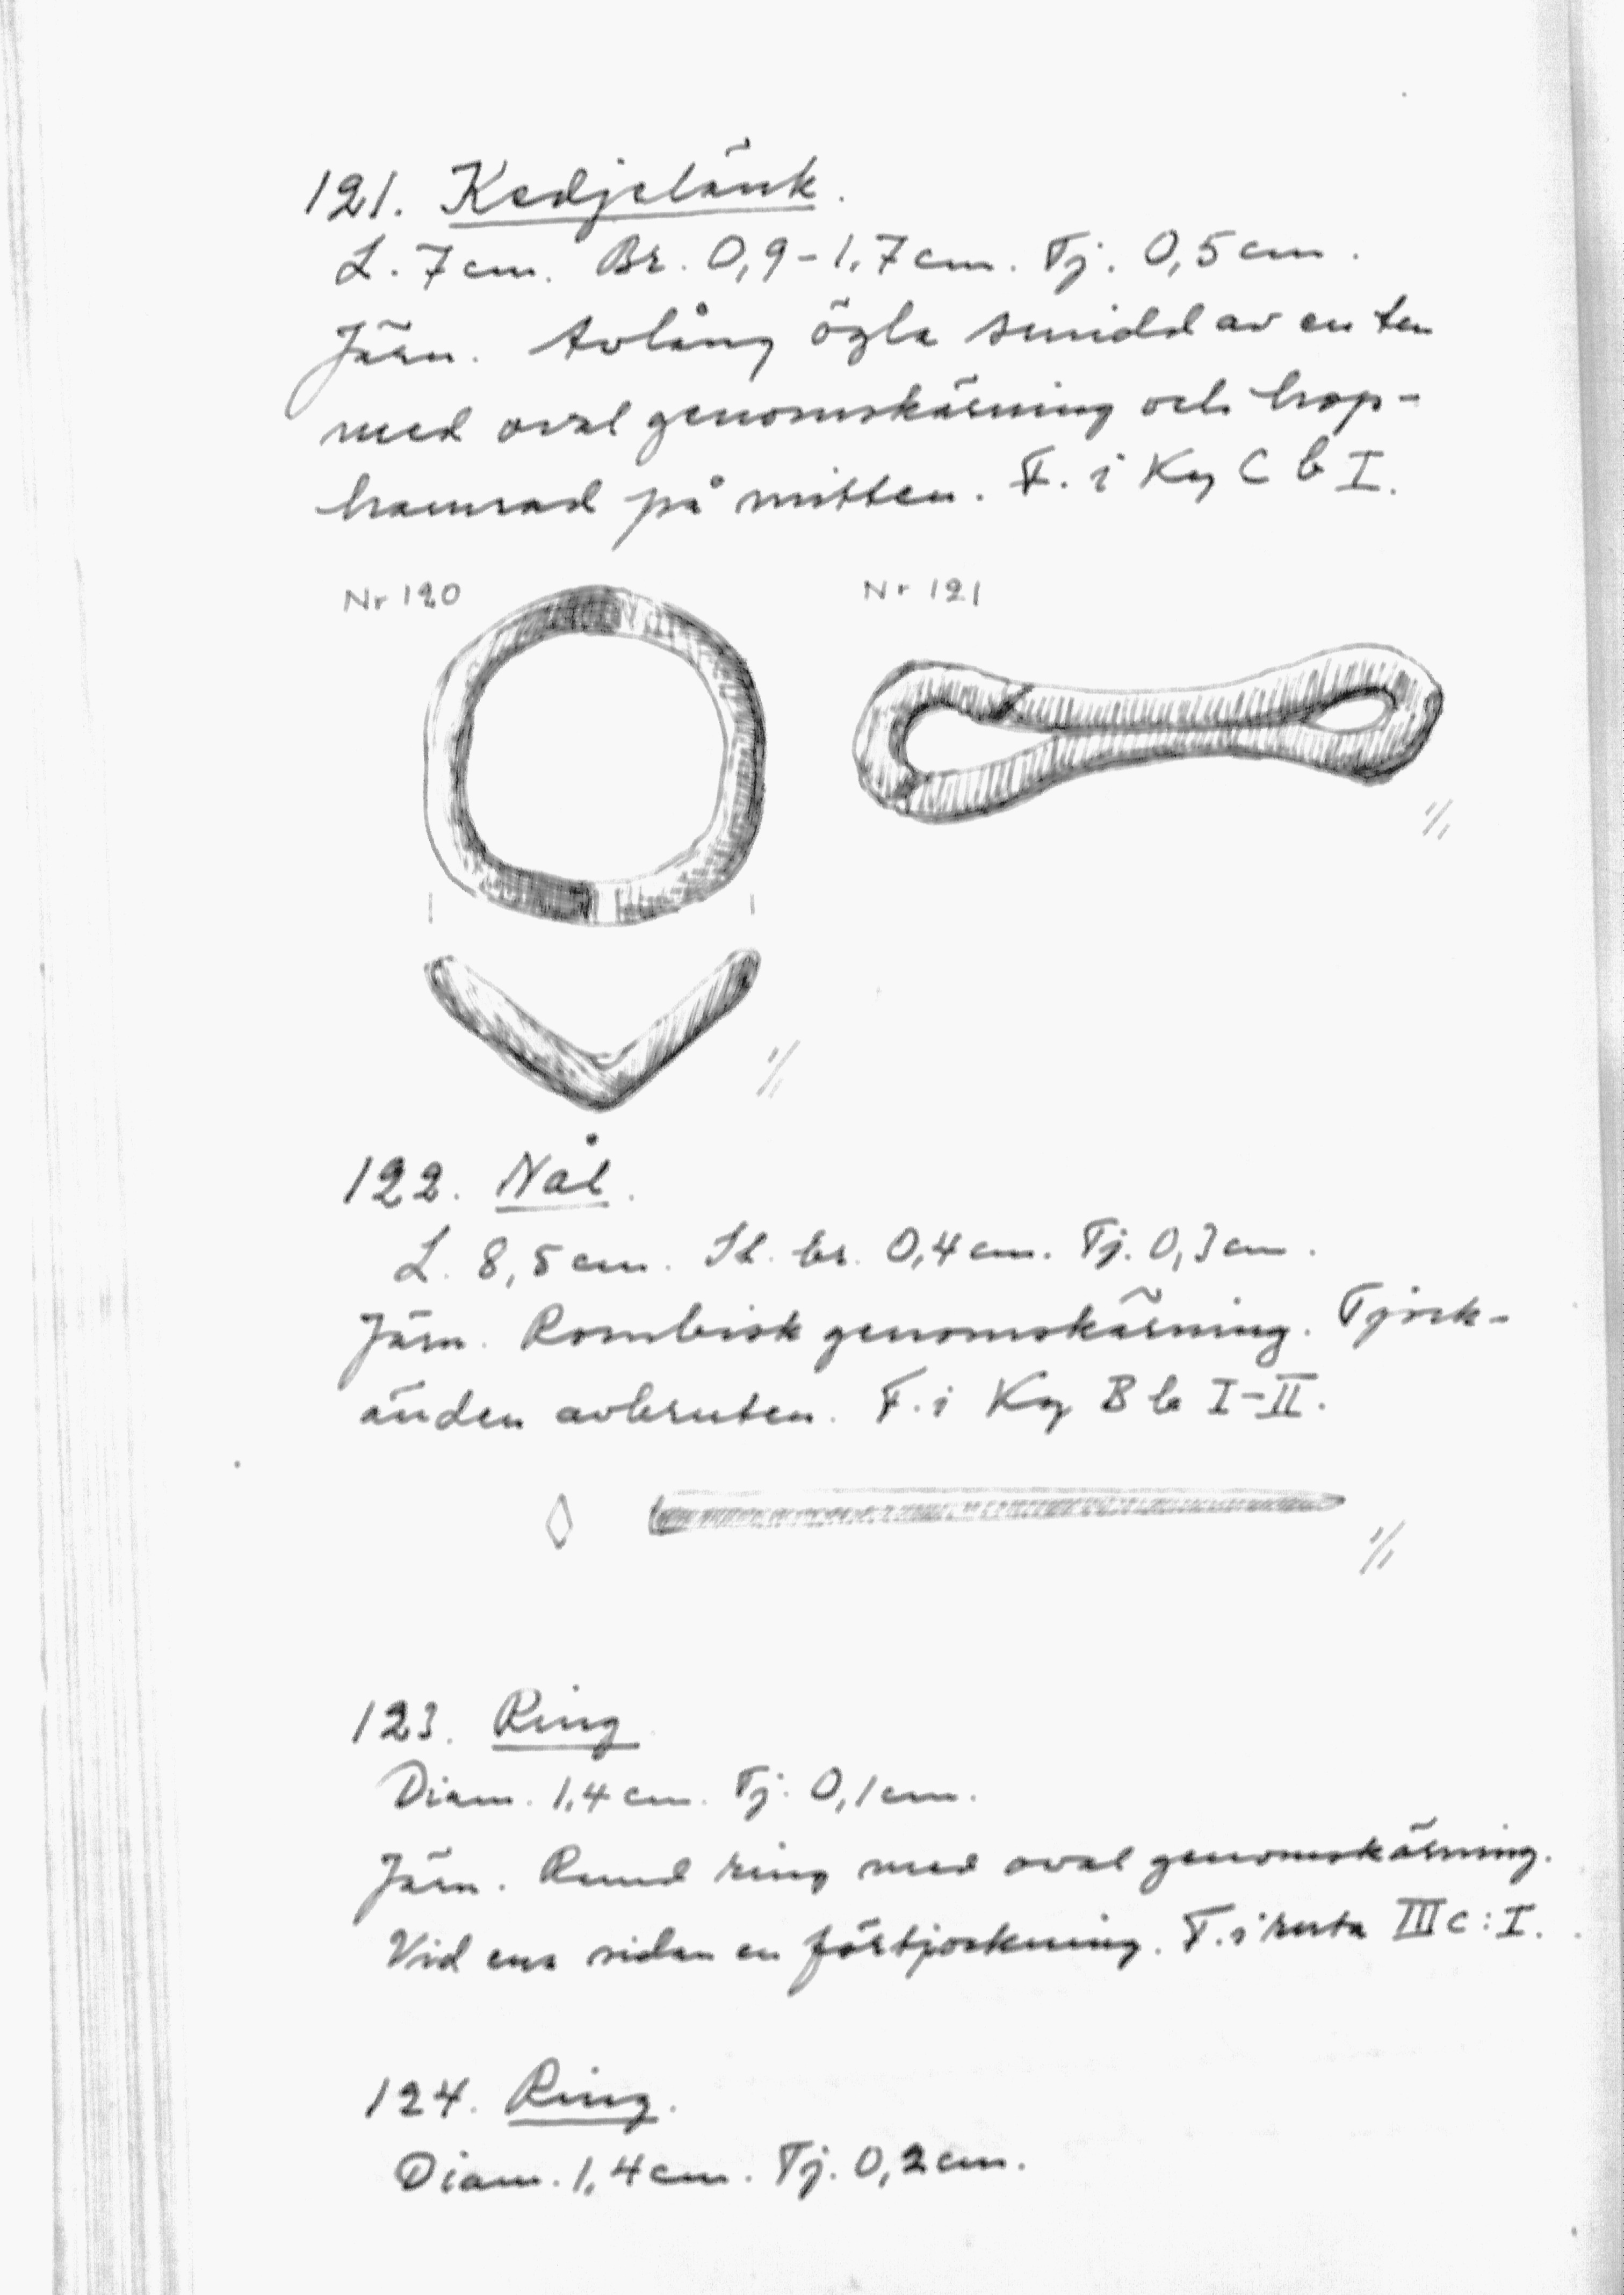 121. Kedjelänk.
L. 7 cm. Br. 0,9-1,7 cm. Tj. 0,5 cm.
Järn. Avlång ögla smidd av en ten
med oval genomskärning och hop-
hamrad på mitten. F. i Kg C b I.
Nr 120
Nr 121
1/1
1/1
122. Nål.
L. 8,5 cm. St. br. 0,4 cm. Tj. 0,3 cm.
Järn. Rombisk genomskärning. Tjock-
änden avbruten. F. i Kg B b I-II.
1/1
123. Ring
Diam. 1,4 cm. Tj. 0,1 cm.
Järn. Rund ring med oval genomskärning.
Vid ena sidan en förtjockning. F. i ruta III c: I.
124. Ring.
Diam. 1,4 cm. Tj. 0,2 cm.